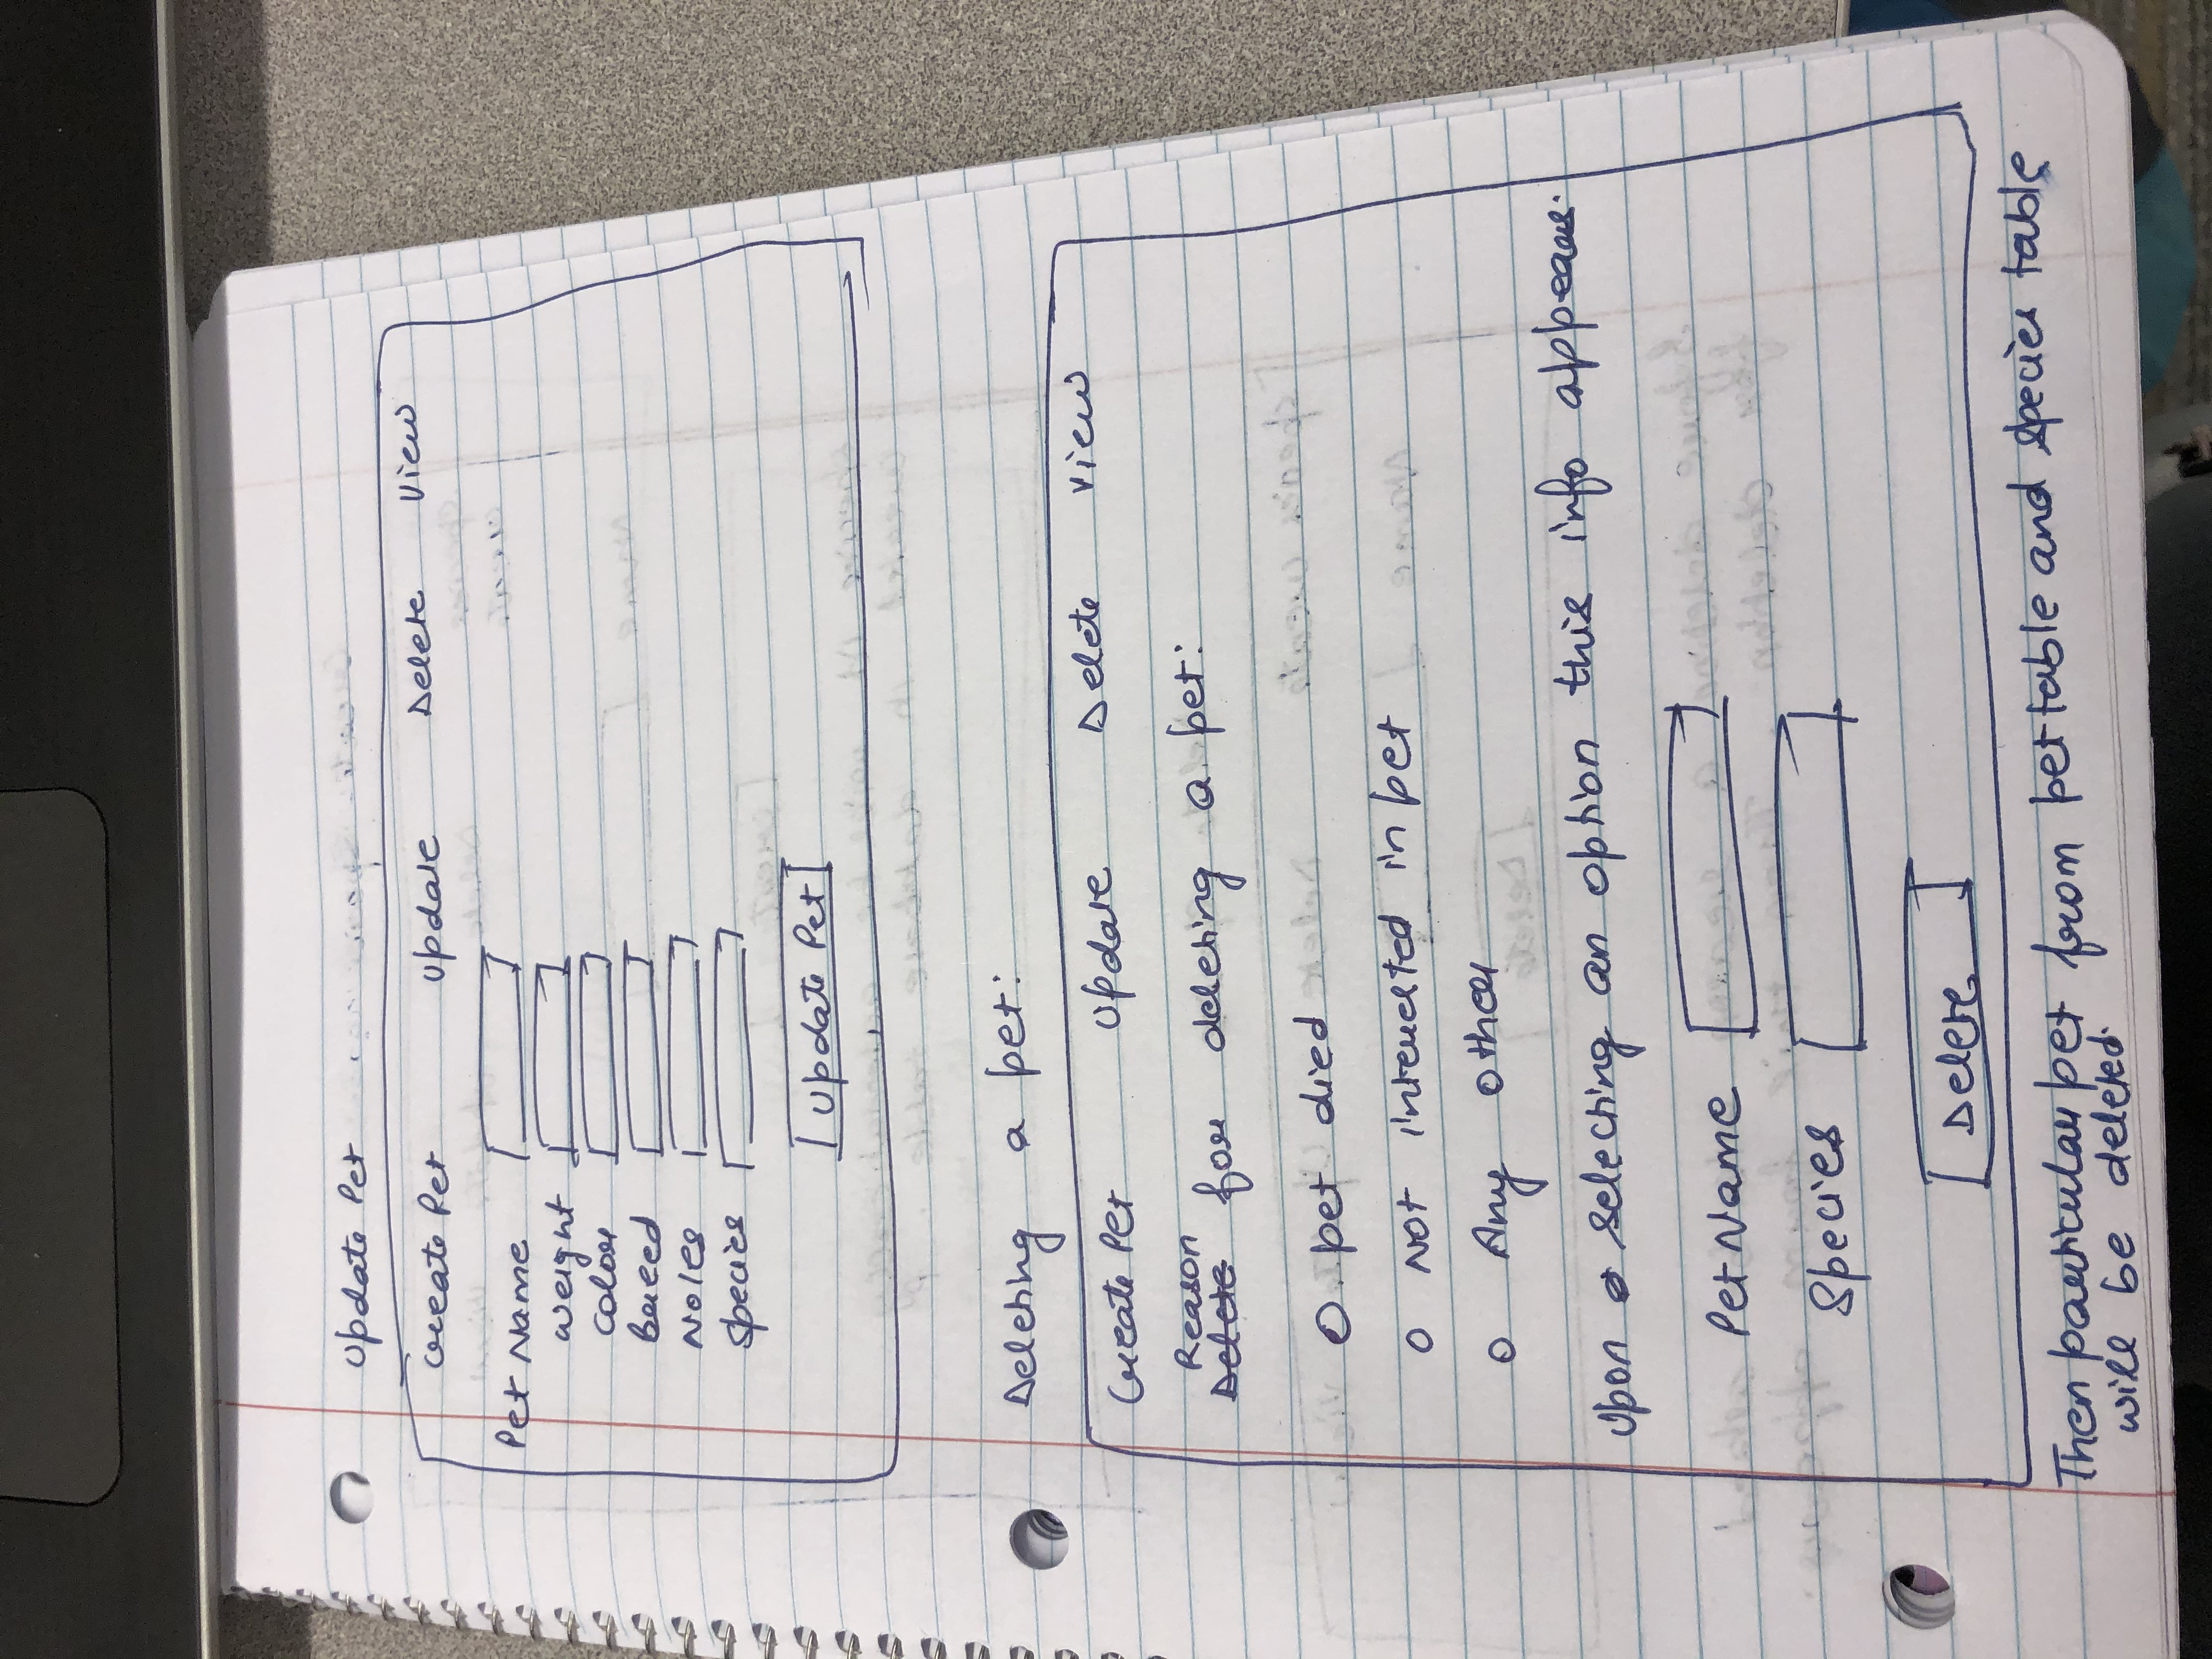 Update Pet
Create Pet Update Delete View
Pet Name
weight
Color
breed
Notes
Species
Update Pet
Deleting a pet:
Create Pet Update Delete View
Reason
Delete for deleting a pet:
pet died
Not interested in pet
Any other
Upon selecting an option this info appears.
Pet Name
Species
Delete
Then particular pet from pet table and species table
will be deleted.